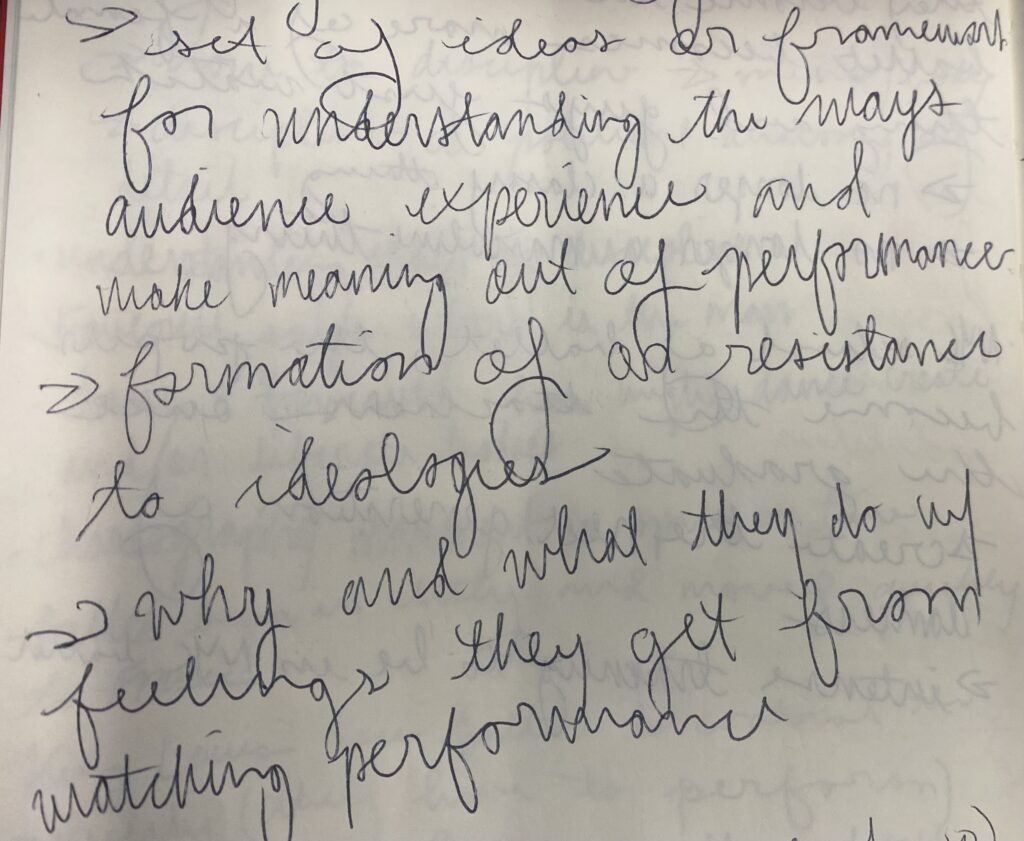 → set of ideas or framework
for understanding the ways
audience experience and
make meaning out of performance
→ formation of od resistance
to ideologies
→ why and what they do w/
feelings they get from
watching performance